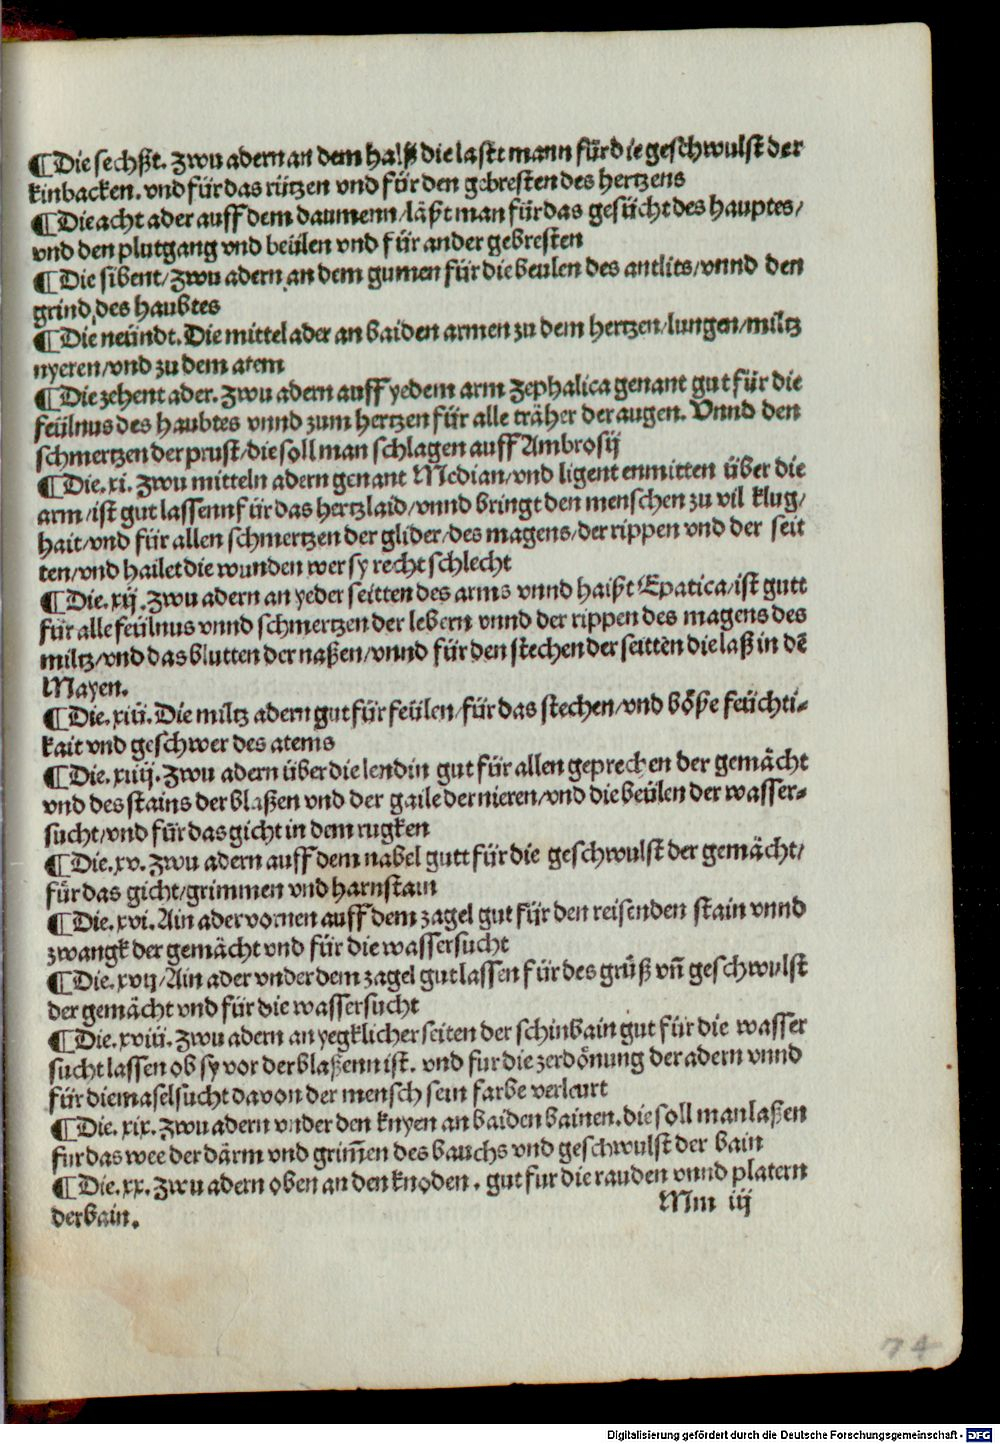 ¶Die sechßt. zwu adern an dem halß die lastt mann für die geschwulst der
kinbacken. vnd für das rützen vnd für den gebresten des hertzens
¶Die acht ader auff dem daumenn/läßt man für das gesücht des hauptes/
vnd den plutgang vnd beülen vnd für ander gebresten
¶Die sibent/zwu adern an dem gumen für die beulen des antlits/vnnd den
grind des haubtes
¶Die neündt. Die mittel ader an baiden armen zu dem hertzen/lungen/miltz
nyeren/vnd zu dem atem
¶Die zehent ader. zwu adern auff yedem arm zephalica genant gut für die
feülnus des haubtes vnnd zum hertzen für alle träher der augen. Vnnd den
schmertzen der prust/die soll man schlagen auff Ambrosij
¶Die. xi. zwu mitteln adern genant Median/vnd ligent enmitten über die
arm/ist gut lassenn für das hertzlaid/vnnd bringt den menschen zu vil klug/
hait/vnd für allen schmertzen der glider/des magens/der rippen vnd der seit
ten/vnd hailet die wunden wer sy recht schlecht
¶Die. xij. zwu adern an yeder seitten des arms vnnd haißt Epatica/ist gutt
für alle feülnus vnnd schmertzen der lebern vnnd der rippen des magens des
miltz/vnd das blutten der naßen/vnnd für den stechen der seitten die laß in dē
Mayen.
¶Die. xiii. Die miltz adern gut für feülen/für das stechen/vnd böße feüchti-
kait vnd geschwer des atems
¶Die. xiiij. zwu adern über die lendin gut für allen geprechen der gemächt
vnd des stains der blaßen vnd der gaile der nieren/vnd die beülen der wasser-
sucht/vnd für das gicht in dem rugken
¶Die. xv. zwu adern auff dem nabel gutt für die geschwulst der gemächt/
für das gicht/grimmen vnd harnstain
¶Die. xvi. Ain ader vornen auff dem zagel gut für den reisenden stain vnnd
zwangk der gemächt vnd für die wassersucht
¶Die. xvij/Ain ader vnder dem zagel gut lassen für des grüß vn̄ geschwulst
der gemächt vnd für die wassersucht
¶Die. xviii. zwu adern an yegklicher seiten der schinbain gut für die wasser
sucht lassen ob sy vor der blaßenn ist. vnd fur die zerdönung der adern vnnd
für die maselsucht davon der mensch sein farbe verleurt
¶Die. xix. zwu adern vnder den knyen an baiden bainen. die soll man laßen
fur das wee der därm vnd grim̄en des bauchs vnd geschwulst der bain
¶Die. xx. zwu adern oben an den knoden. gut fur die rauden vnnd platern
der bain.
Mm iij
74
Digitalisierung gefördert durch die Deutsche Forschungsgemeinschaft - DFG